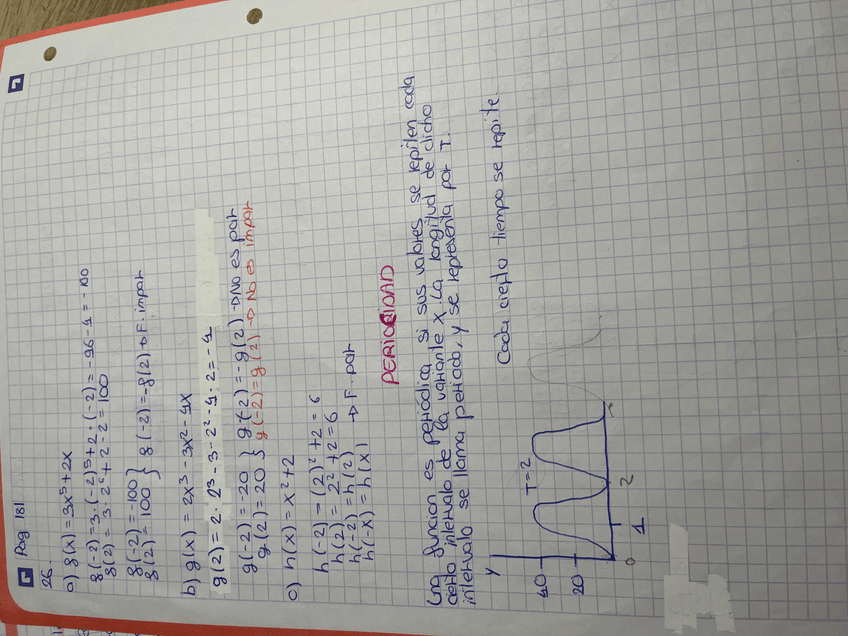 Pag 181
26.
a) f(x) = 3x⁵ + 2x
f(-2) = 3·(-2)⁵ + 2·(-2) = -96 - 4 = -100
f(2) = 3·2⁵ + 2·2 = 100
f(-2) = -100
f(2) = 100 } f(-2) = -f(2) → F. impar
b) g(x) = 2x³ - 3x² - 4x
g(2) = 2·2³ - 3·2² - 4·2 = -4
g(-2) = -20 } g(-2) = -g(2) → No es par
g(2) = 20 } g(-2) = g(2) → No es impar
c) h(x) = x² + 2
h(-2) - (2)² + 2 = 6
h(2) = 2² + 2 = 6
h(-2) = h(2)
h(-x) = h(x) → F. par
PERIOCIDAD
Una función es periódica, si sus valores se repiten cada
cierto intervalo de la variante x. La longitud de dicho
intervalo se llama periodo, y se representa por T.
Cada cierto tiempo se repite.
Y
T=2
40
20
0
1
2